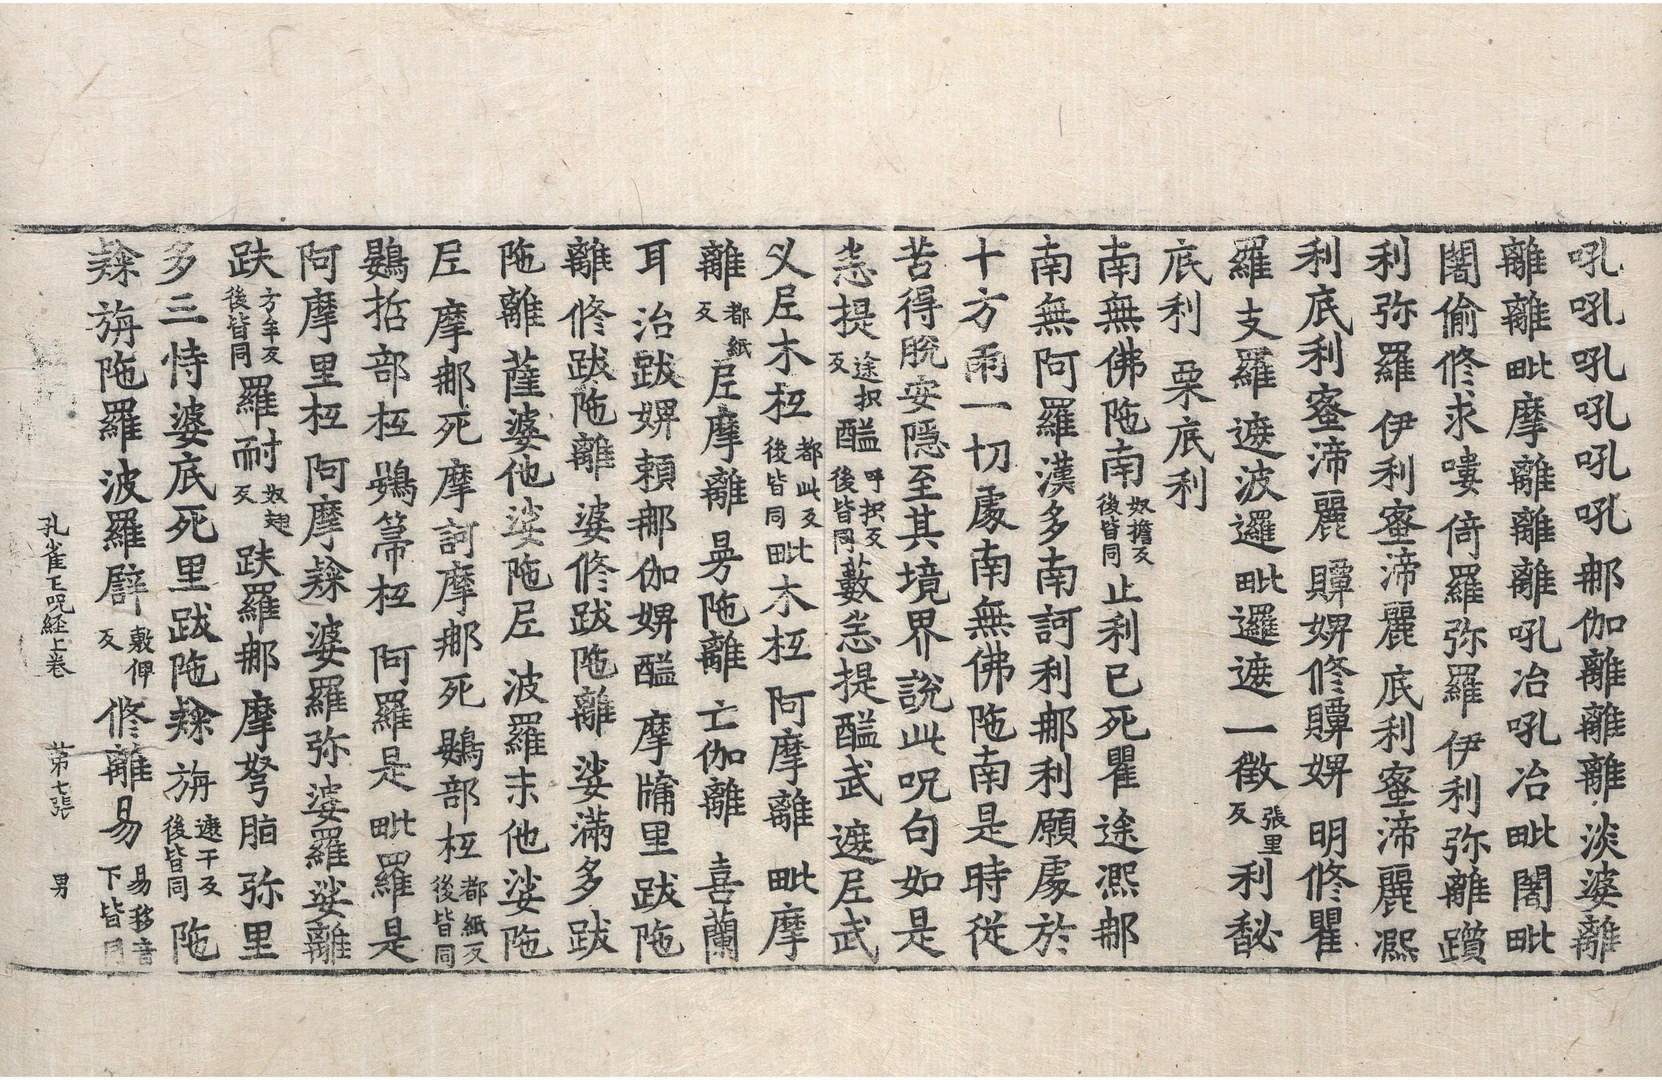 吼吼吼吼吼吼 郍伽離離離淡婆離
離離毗摩離離離吼冶吼冶毗闍毗
闍偷修求嘍 倚羅弥羅 伊利弥離躓
利弥羅 伊利蜜渧麗 底利蜜渧麗凞
利底利蜜渧麗 贉婢修贉婢 明修瞿
羅支羅 遮波邏毗邏遮一徵張里反利馝
底利 栗底利
南無佛陁南奴擔反後皆同止利已死瞿途凞郍
南無阿羅漢多南訶利郍利願處於
十方雨一切處南無佛陁南是時従
苦得脫安隱至其境界說此呪句如是
恙提途択反醯呼択反後皆同藪恙提醯武 遮𡰱武
乂𡰱木枑都此反後皆同毗木枑 阿摩離 毗摩
離都紙反𡰱摩離 㫒陁離 亡伽離 喜蘭
耳治跋婢賴郍伽婢醯 摩牗里跋陁
離修跋陁離 婆修跋陁離 娑滿多跋
陁離薩婆他娑陁𡰱 波羅末他娑陁
𡰱 摩郍死 摩訶摩郍死 鷃部枑都紙反後皆同
鷃哲部枑 鵕箒枑 阿羅是毗羅是
阿摩里枑 阿摩𨤲 婆羅弥婆羅娑離
趺方牟反後皆同羅耐奴趐反趺羅郍摩弩脂 弥里
多三恃婆底死里跋陁𨤲 旃遮干反後皆同陁
𨤲 旃陁羅波羅廦敷俾反修離易易移音下皆同
孔雀王呪経上卷 苐七張 男